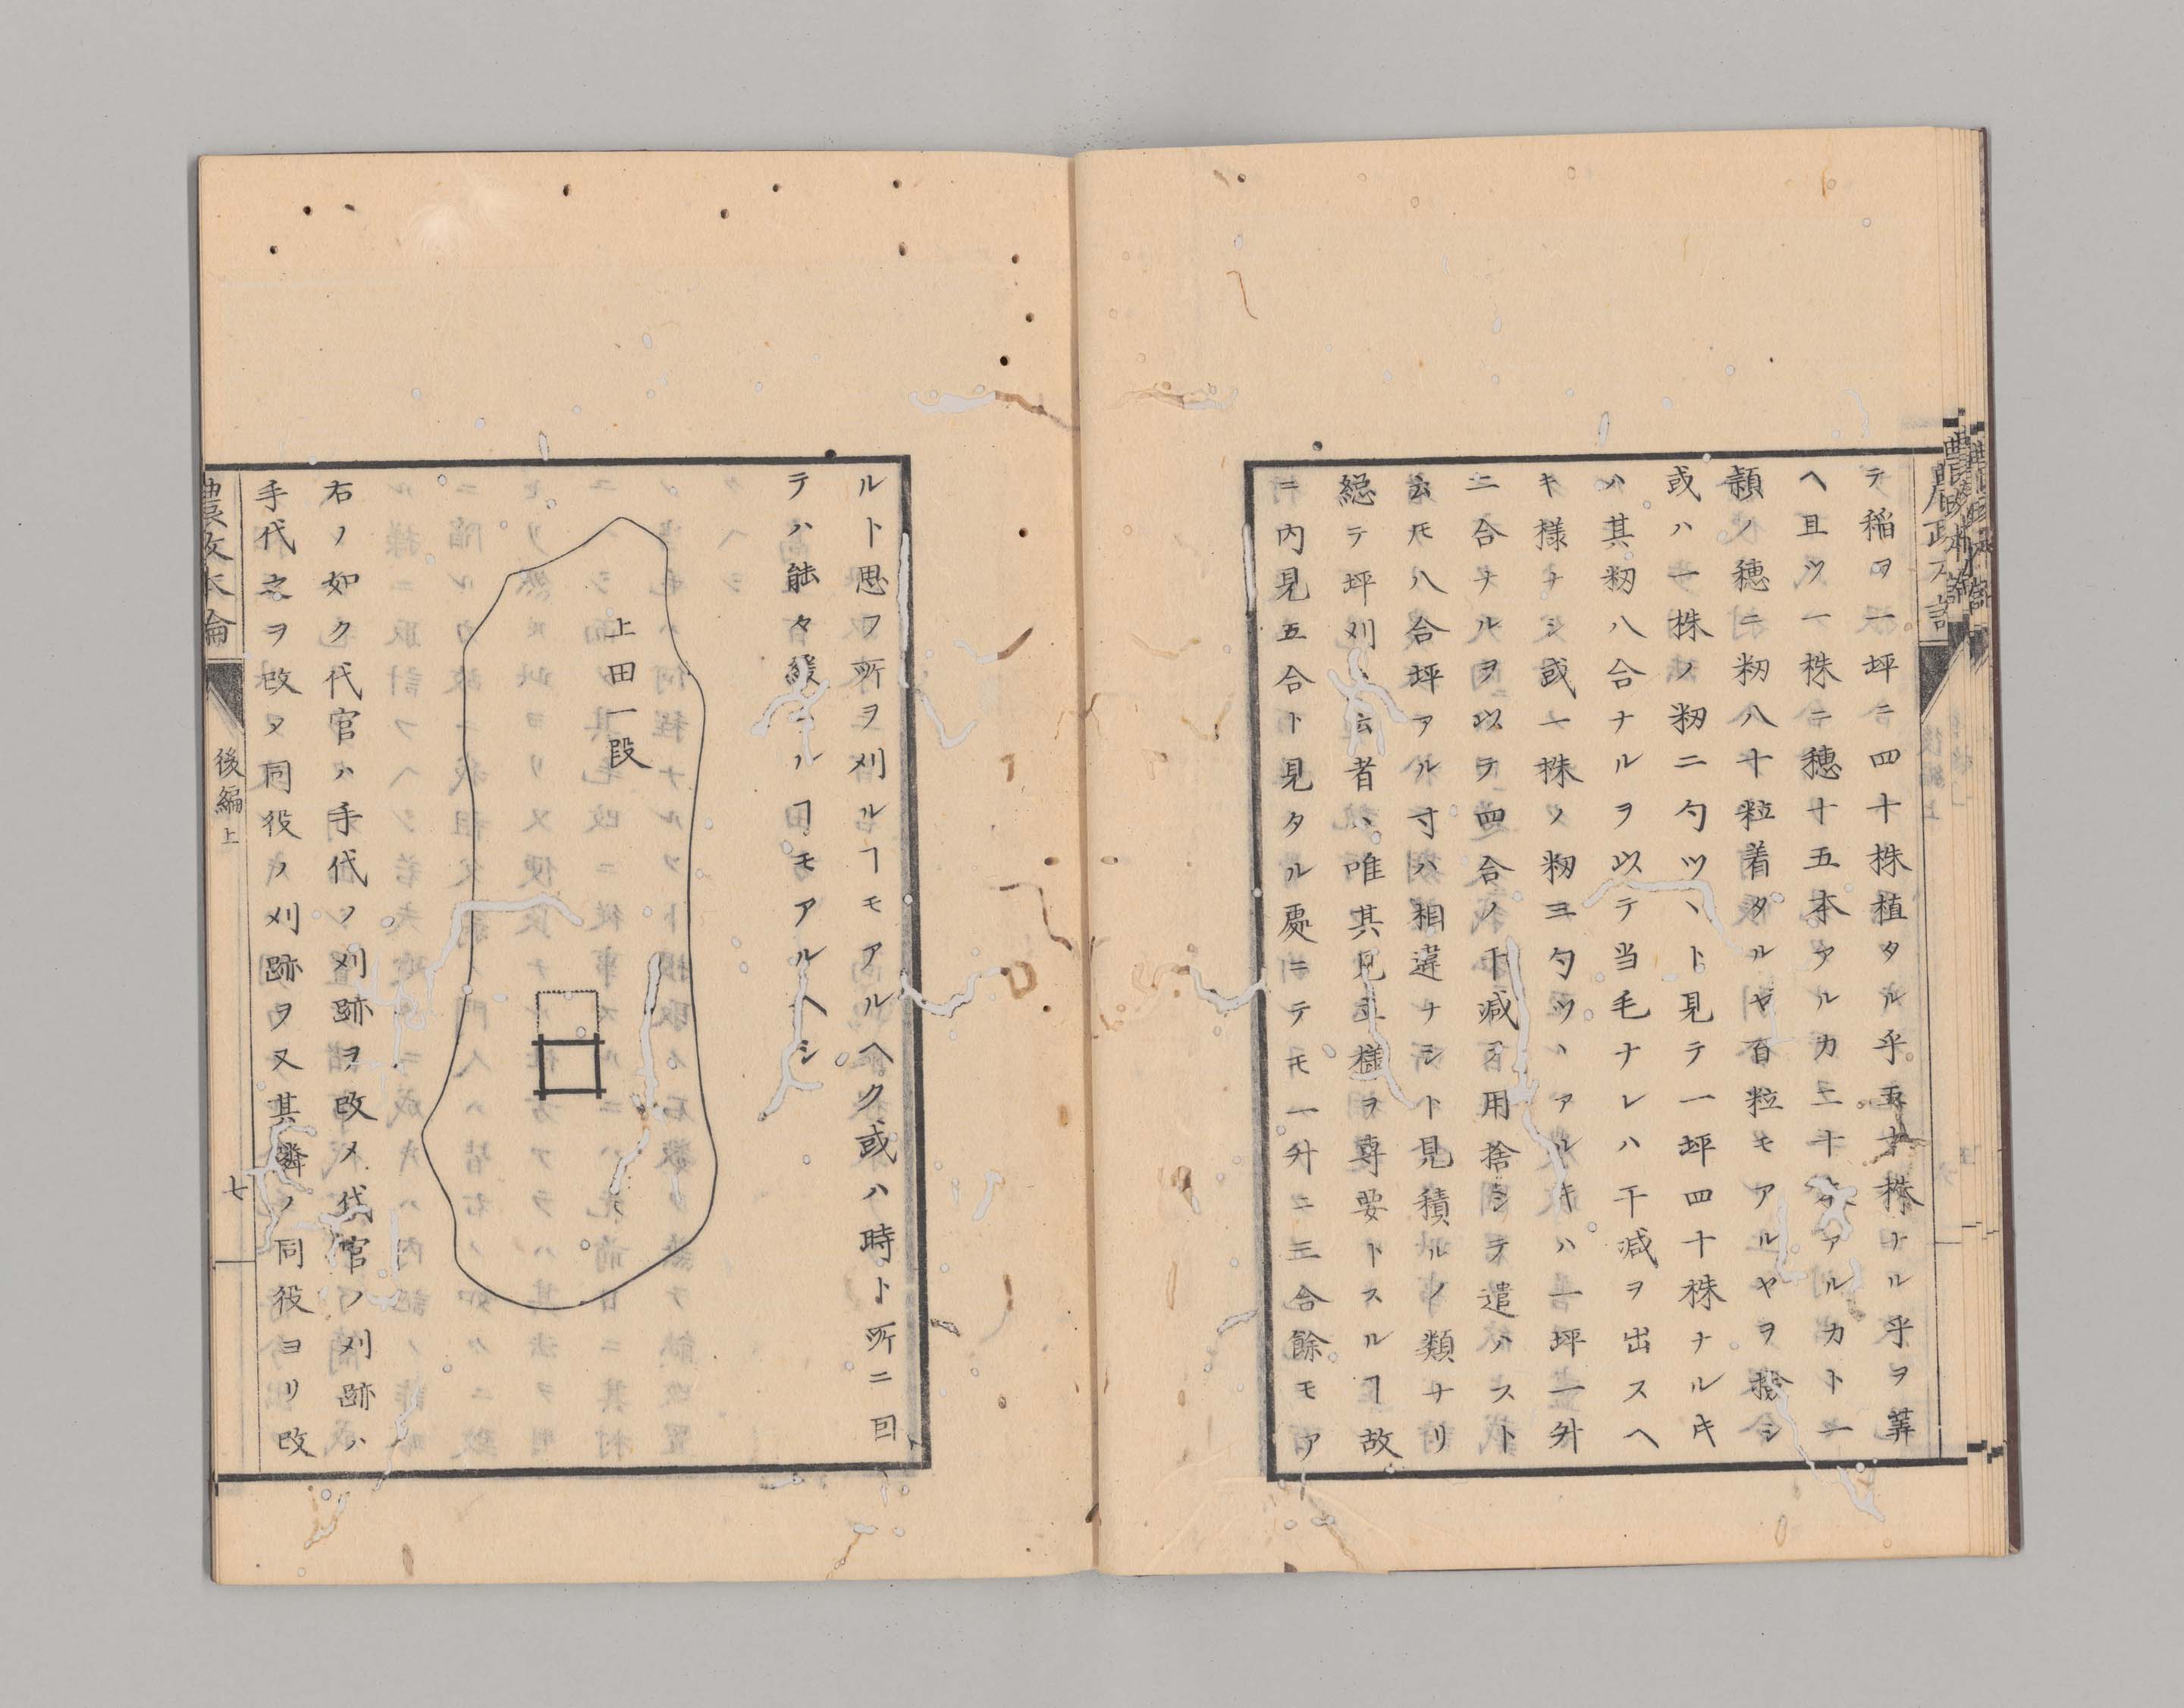 テ稲ヲ一坪ニ四十株植タル乎五十株ナル乎ヲ筭
ヘ且ツ一株ニ穂十五本アルカ二十本アルカト一
穎ノ穂ニ籾八十粒着タルヤ百粒モアルヤヲ撿シ
或ハ一株ノ籾二勺ツヽト見テ一坪四十株ナル𪜈
ハ其籾八合ナルヲ以テ当毛ナレハ干減ヲ出スヘ
キ様ナシ或一株ノ籾三勺ツヽアルキハ一坪一舛
二合ナルヲ以テ四合ノ干減ヲ用捨シテ遣ハスト
云𪜈八合坪アル寸ハ相違ナシト見積ルノ類ナリ
総テ坪刈ト云者ハ唯其見立様ヲ專要トスルヿ故
ニ内見五合ト見タル處ニテモ一舛ニ三合餘モア
ルト思フ所ヲ刈ルヿモアルヘク或ハ時ト所ニ囙
テハ能々緩ヘルヿモアルヘシ
上田一段
右ノ如ク代官ハ手代ノ刈跡ヲ改メ代官ノ刈跡ハ
手代之ヲ改ヌ同役ノ刈跡ヲ又其隣ノ同役ヨリ改
農政本論
後編上
七